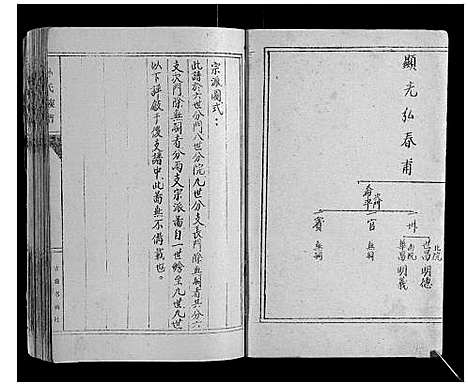 顯光弘春甫
卅
官
賓
無嗣
無嗣
北院
世昌 明德
南院
華昌 明義
宗派圖式：
此譜於六世分門八世分院九世分支長門除無嗣者共分六
支次門除無嗣者分兩支宗派圖自一世繪至九世九世
以下詳敘于後支譜中此圖無不備載也。